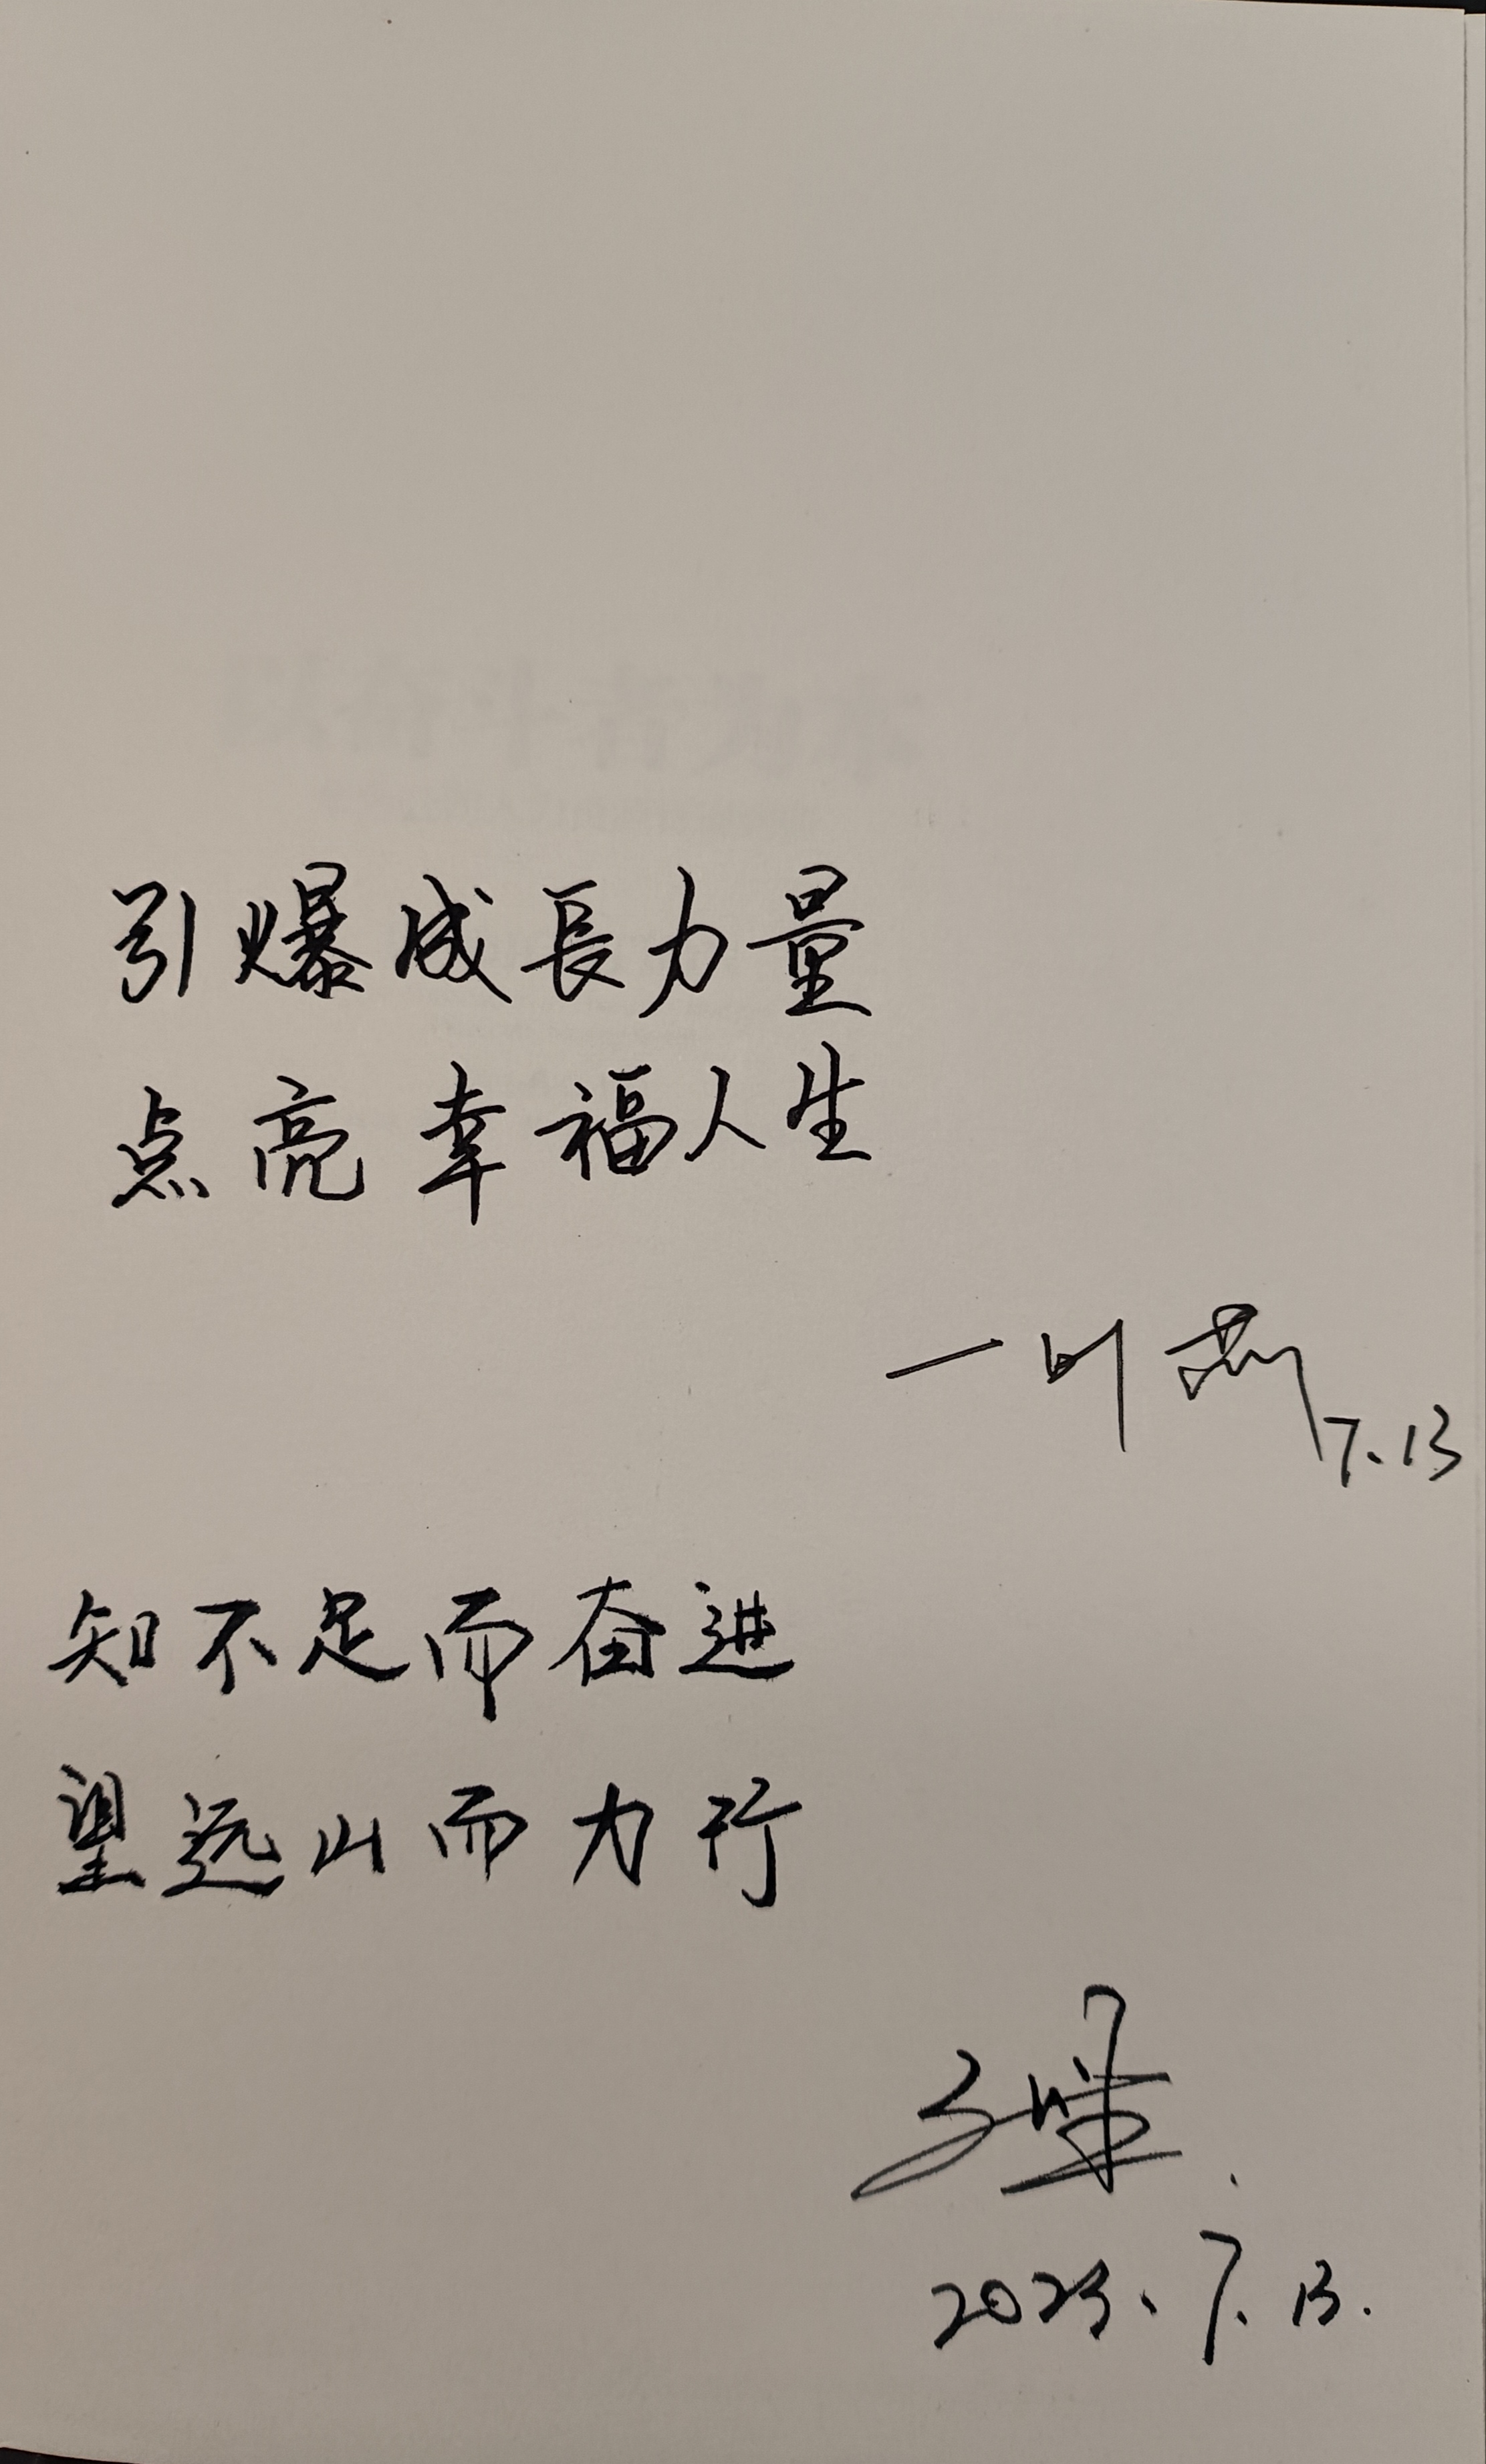 引爆成長力量
点亮幸福人生
7.13
知不足而奋进
望远山而力行
2023.7.13.